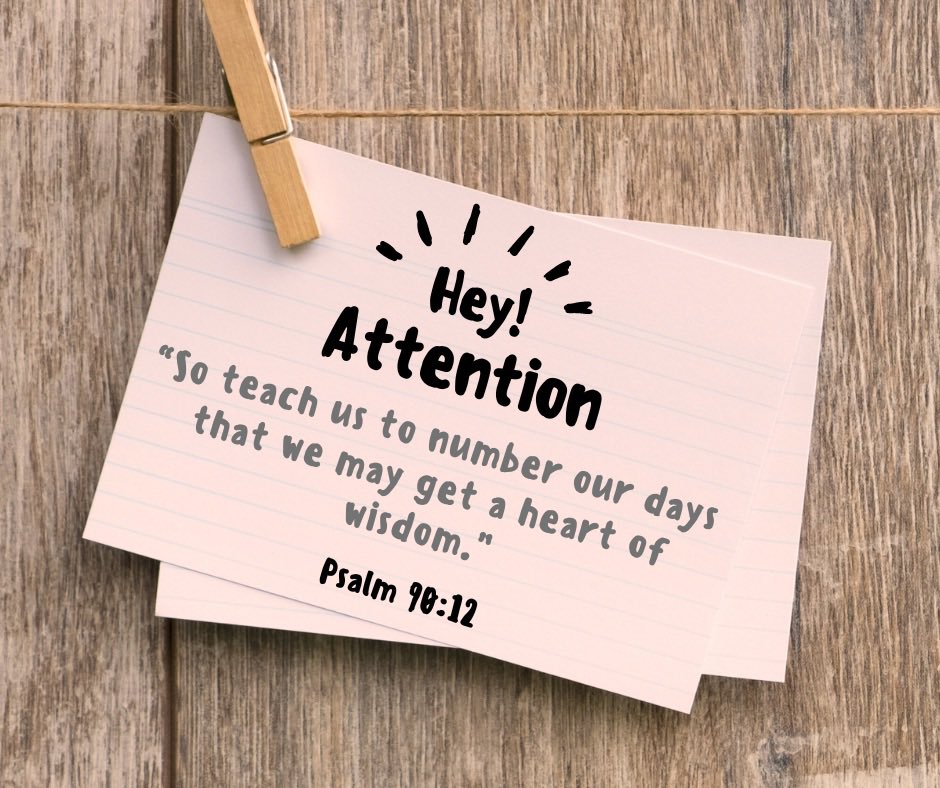 Hey!
Attention
“So teach us to number our days
that we may get a heart of
wisdom.”
Psalm 90:12